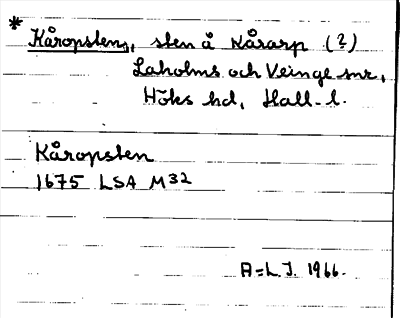 * Kåropsten, sten å Kårarp (?)
Laholms och Veinge snr,
Höks hd, Hall. l.
Kåropsten
1675 LSA M32
A=L.J. 1966.